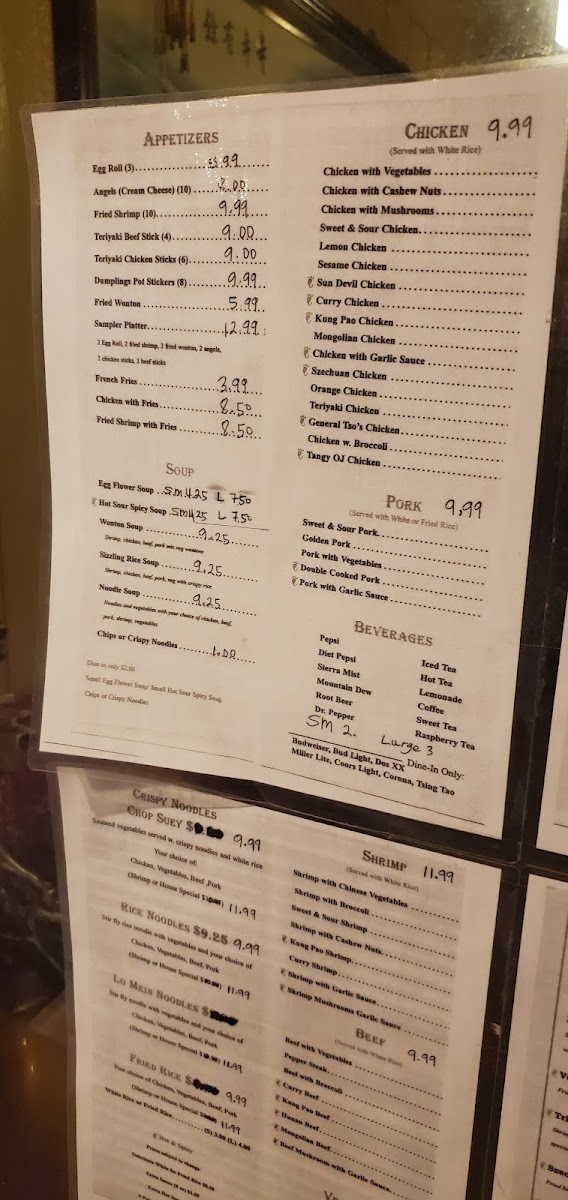 APPETIZERS
Egg Roll (3) 99
Angels (Cream Cheese) (10) .00
Fried Shrimp (10) 9.99
Teriyaki Beef Stick (4) 9.00
Teriyaki Chicken Sticks (6) 9.00
Dumplings Pot Stickers (8) 9.99
Fried Wonton 5.99
Sampler Platter 12.99
2 Egg Roll, 2 fried shrimp, 2 fried wonton, 2 angels,
2 chicken sticks, 2 beef sticks
French Fries 3.99
Chicken with Fries 8.50
Fried Shrimp with Fries 8.50
SOUP
Egg Flower Soup Sm 4.25 L 7.50
Hot Sour Spicy Soup Sm 4.25 L 7.50
Wonton Soup 9.25
Shrimp, chicken, beef, pork mix veg wontons
Sizzling Rice Soup 9.25
Shrimp, chicken, beef, pork, veg with crispy rice
Noodle Soup 9.25
Noodles and vegetables with your choice of chicken, beef,
pork, shrimp, vegetables
Chips or Crispy Noodles 1.00
Dine in only $2.00
Small Egg Flower Soup/ Small Hot Sour Spicy Soup
Chips or Crispy Noodles
CHICKEN 9.99
(Served with White Rice)
Chicken with Vegetables
Chicken with Cashew Nuts
Chicken with Mushrooms
Sweet & Sour Chicken
Lemon Chicken
Sesame Chicken
Sun Devil Chicken
Curry Chicken
Kung Pao Chicken
Mongolian Chicken
Chicken with Garlic Sauce
Szechuan Chicken
Orange Chicken
Teriyaki Chicken
General Tso's Chicken
Chicken w. Broccoli
Tangy OJ Chicken
PORK 9.99
(Served with White or Fried Rice)
Sweet & Sour Pork
Golden Pork
Pork with Vegetables
Double Cooked Pork
Pork with Garlic Sauce
BEVERAGES
Pepsi
Diet Pepsi
Sierra Mist
Mountain Dew
Root Beer
Dr. Pepper
Iced Tea
Hot Tea
Lemonade
Coffee
Sweet Tea
Raspberry Tea
Sm 2. Large 3
Budweiser, Bud Light, Dos XX Dine-In Only:
Miller Lite, Coors Light, Corona, Tsing Tao
CRISPY NOODLES
CHOP SUEY $ 9.99
Sauteed vegetables served w. crispy noodles and white rice
Your choice of:
Chicken, Vegetables, Beef, Pork
(Shrimp or House Special 11.99
RICE NOODLES $9.25 9.99
Stir fly rice noodle with vegetables and your choice of
Chicken, Vegetables, Beef, Pork
(Shrimp or House Special 11.99
LO MEIN NOODLES $
Stir fly noodle with vegetables and your choice of
Chicken, Vegetables, Beef, Pork
(Shrimp or House Special 11.99
FRIED RICE $ 9.99
Your choice of Chicken, Vegetables, Beef, Pork
(Shrimp or House Special 11.99
White Rice or Fried Rice (S) 3.00 (L) 4.00
Hot & Spicy
Prices subject to change.
SHRIMP 11.99
(Served with White Rice)
Shrimp with Chinese Vegetables
Shrimp with Broccoli
Sweet & Sour Shrimp
Shrimp with Cashew Nuts
Kung Pao Shrimp
Curry Shrimp
Shrimp with Garlic Sauce
Shrimp Mushrooms Garlic Sauce
BEEF 9.99
(Served with White Rice)
Beef with Vegetables
Pepper Steak
Beef with Broccoli
Curry Beef
Kung Pao Beef
Hunan Beef
Mongolian Beef
Beef Mushroom with Garlic Sauce